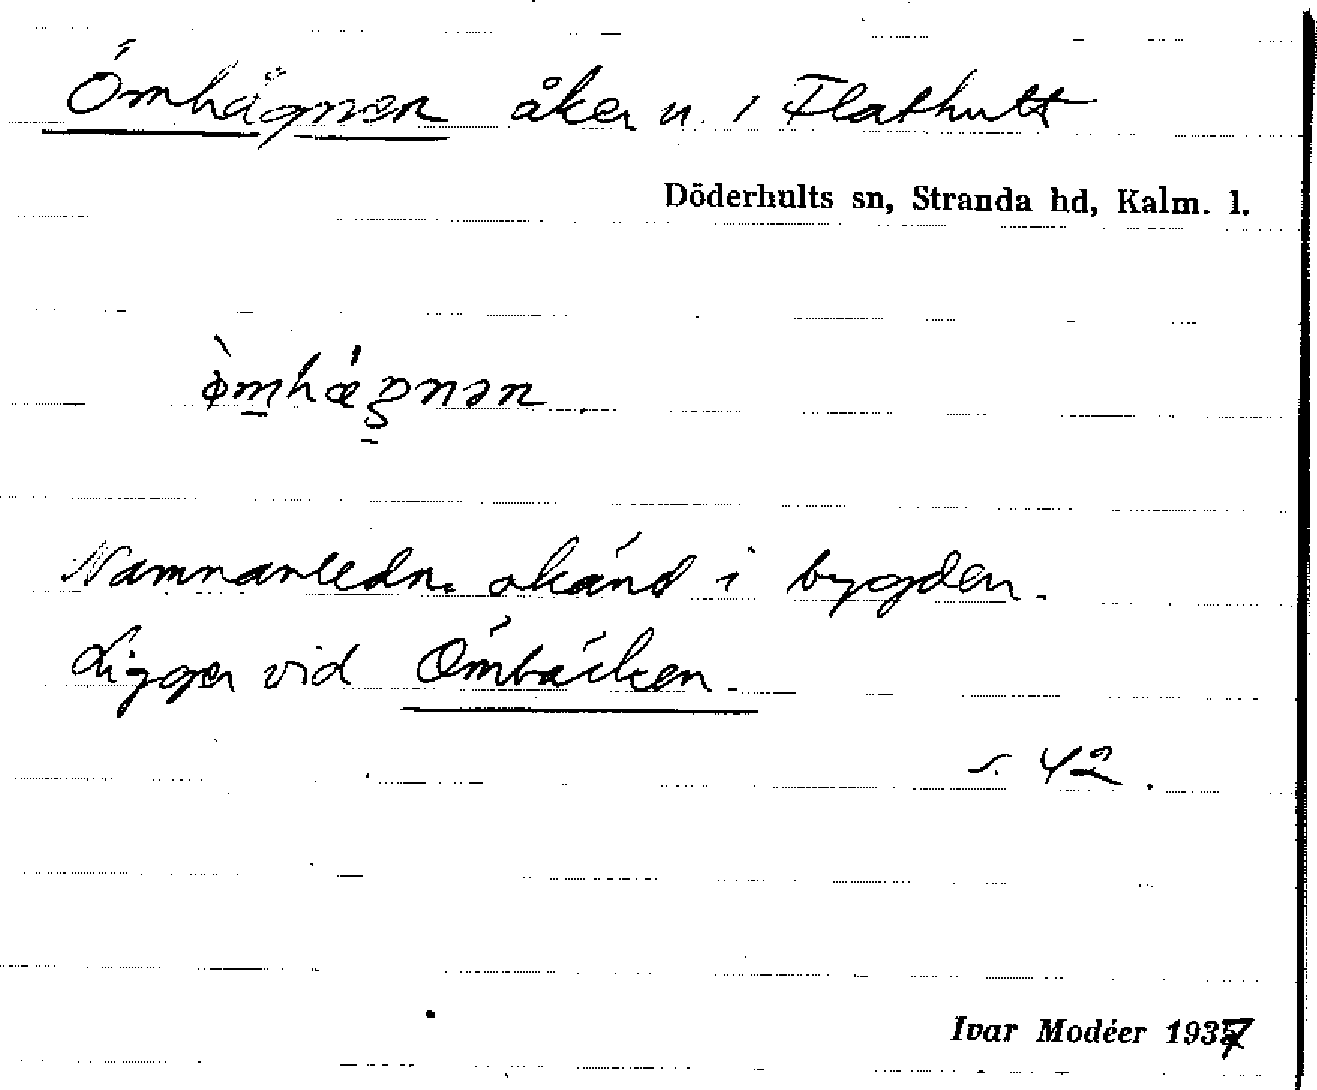 Ömhägnen åker n. 1 Flathult
Döderhults sn, Stranda hd, Kalm. l.
ὸm̠hǽgnən
Namnanledn. okänd i bygden.
Ligger vid Ömbäcken.
s. 42.
Ivar Modéer 1937